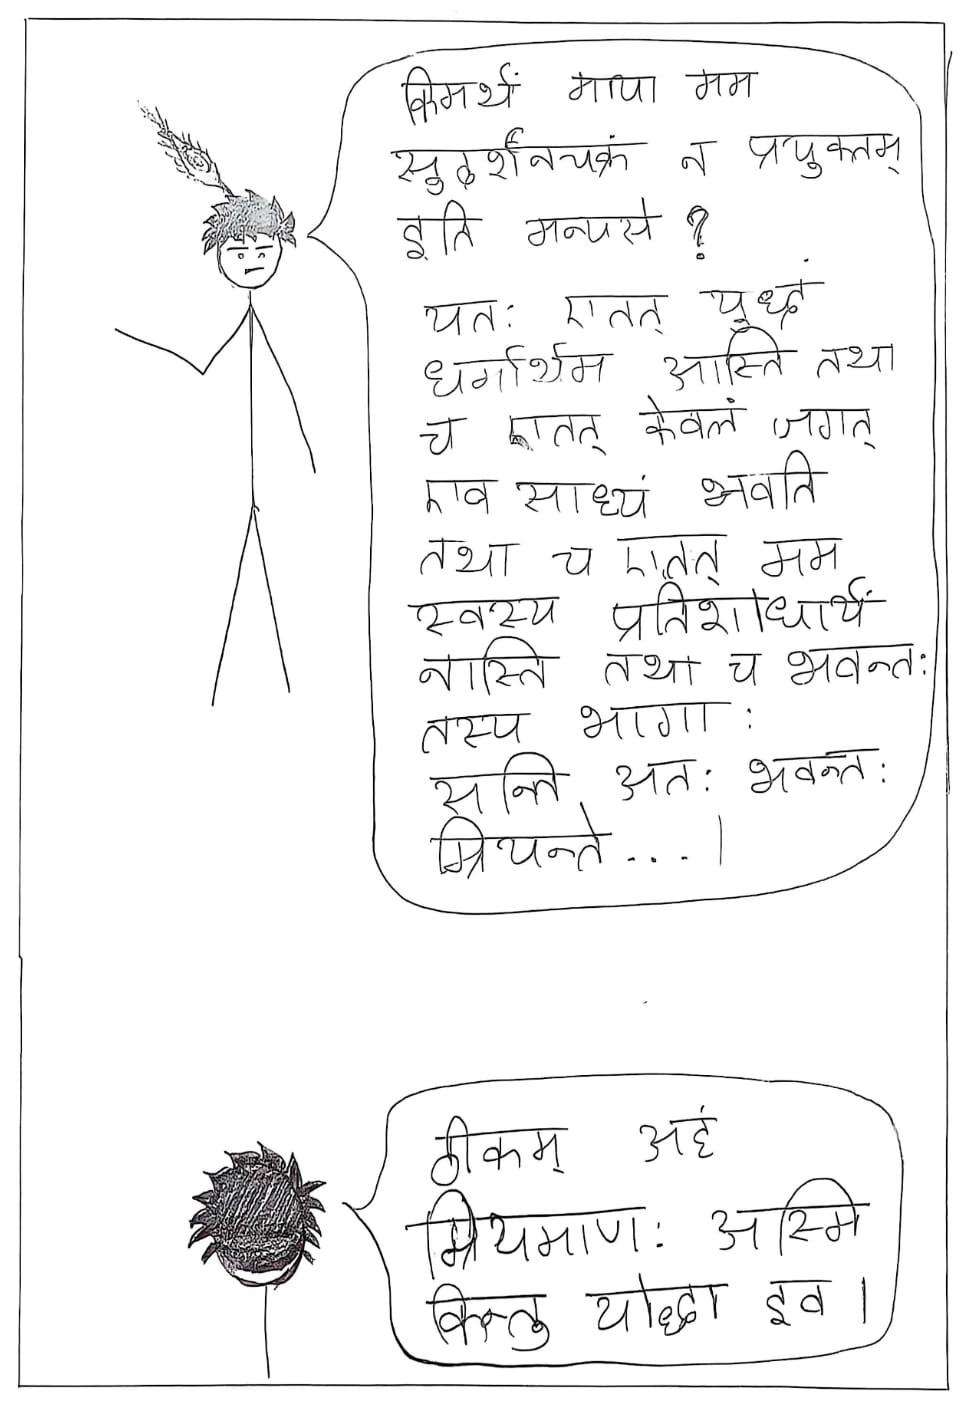 किमर्थं माया मम
सुदर्शनचक्रं न प्रयुक्तम्
इति मन्यसे ?
यतः एतत् युध्दं
धर्मार्थम अास्ति तथा
च एतत् केवलं जगत्
एव साध्यं भवति
तथा च एतत् मम
स्वस्य प्रतिशोधार्थं
नास्ति तथा च भवन्तः
तस्य भागाः
सन्ति अतः भवन्तः
म्रियन्ते....।
ठीकम् अहं
म्रियमाणः अस्मि
किन्तु योद्धा इव।